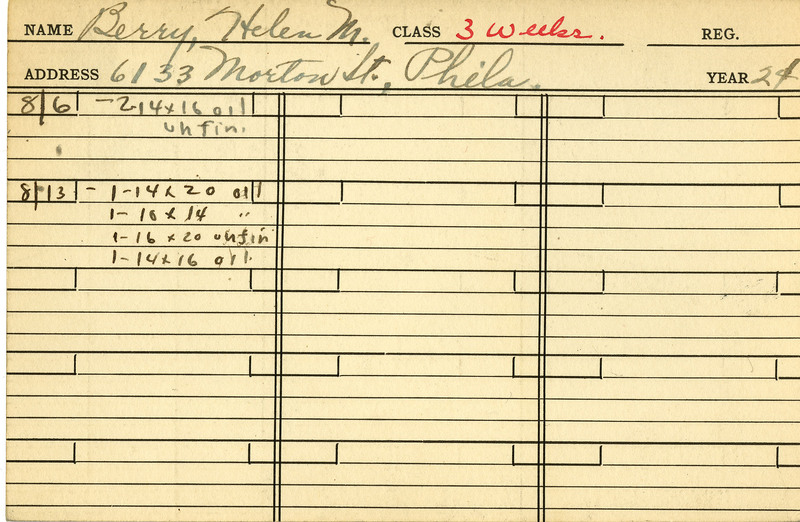 NAME Berry, Helen M. CLASS 3 Weeks. REG.
ADDRESS 6133 Morton St., Phila. YEAR 24
8/6 - 2-14x16 oil
unfin.
8/13 - 1-14x20 oil
1-18x14 "
1-16x20 unfin
1-14x16 oil